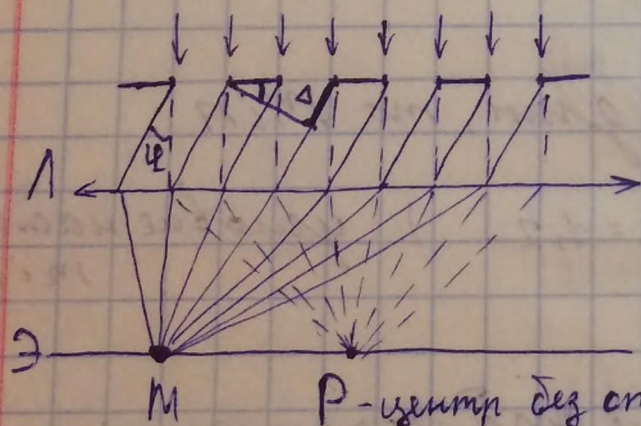 Δ
φ
Л
Э
М Р - центр без